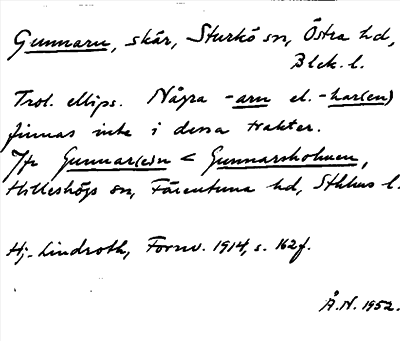 Gunnarn, skär, Sturkö sn, Östra hd,
Blek. l.
Trol. ellips. Några -arn el. -har(en)
finnas inte i dessa trakter.
Jfr Gunnar(e)n < Gunnarsholmen,
Hilleshögs sn, Färentuna hd, Sthlms l.
Hj. Lindroth, Fornv. 1914, s. 162f.
Å.N. 1952.